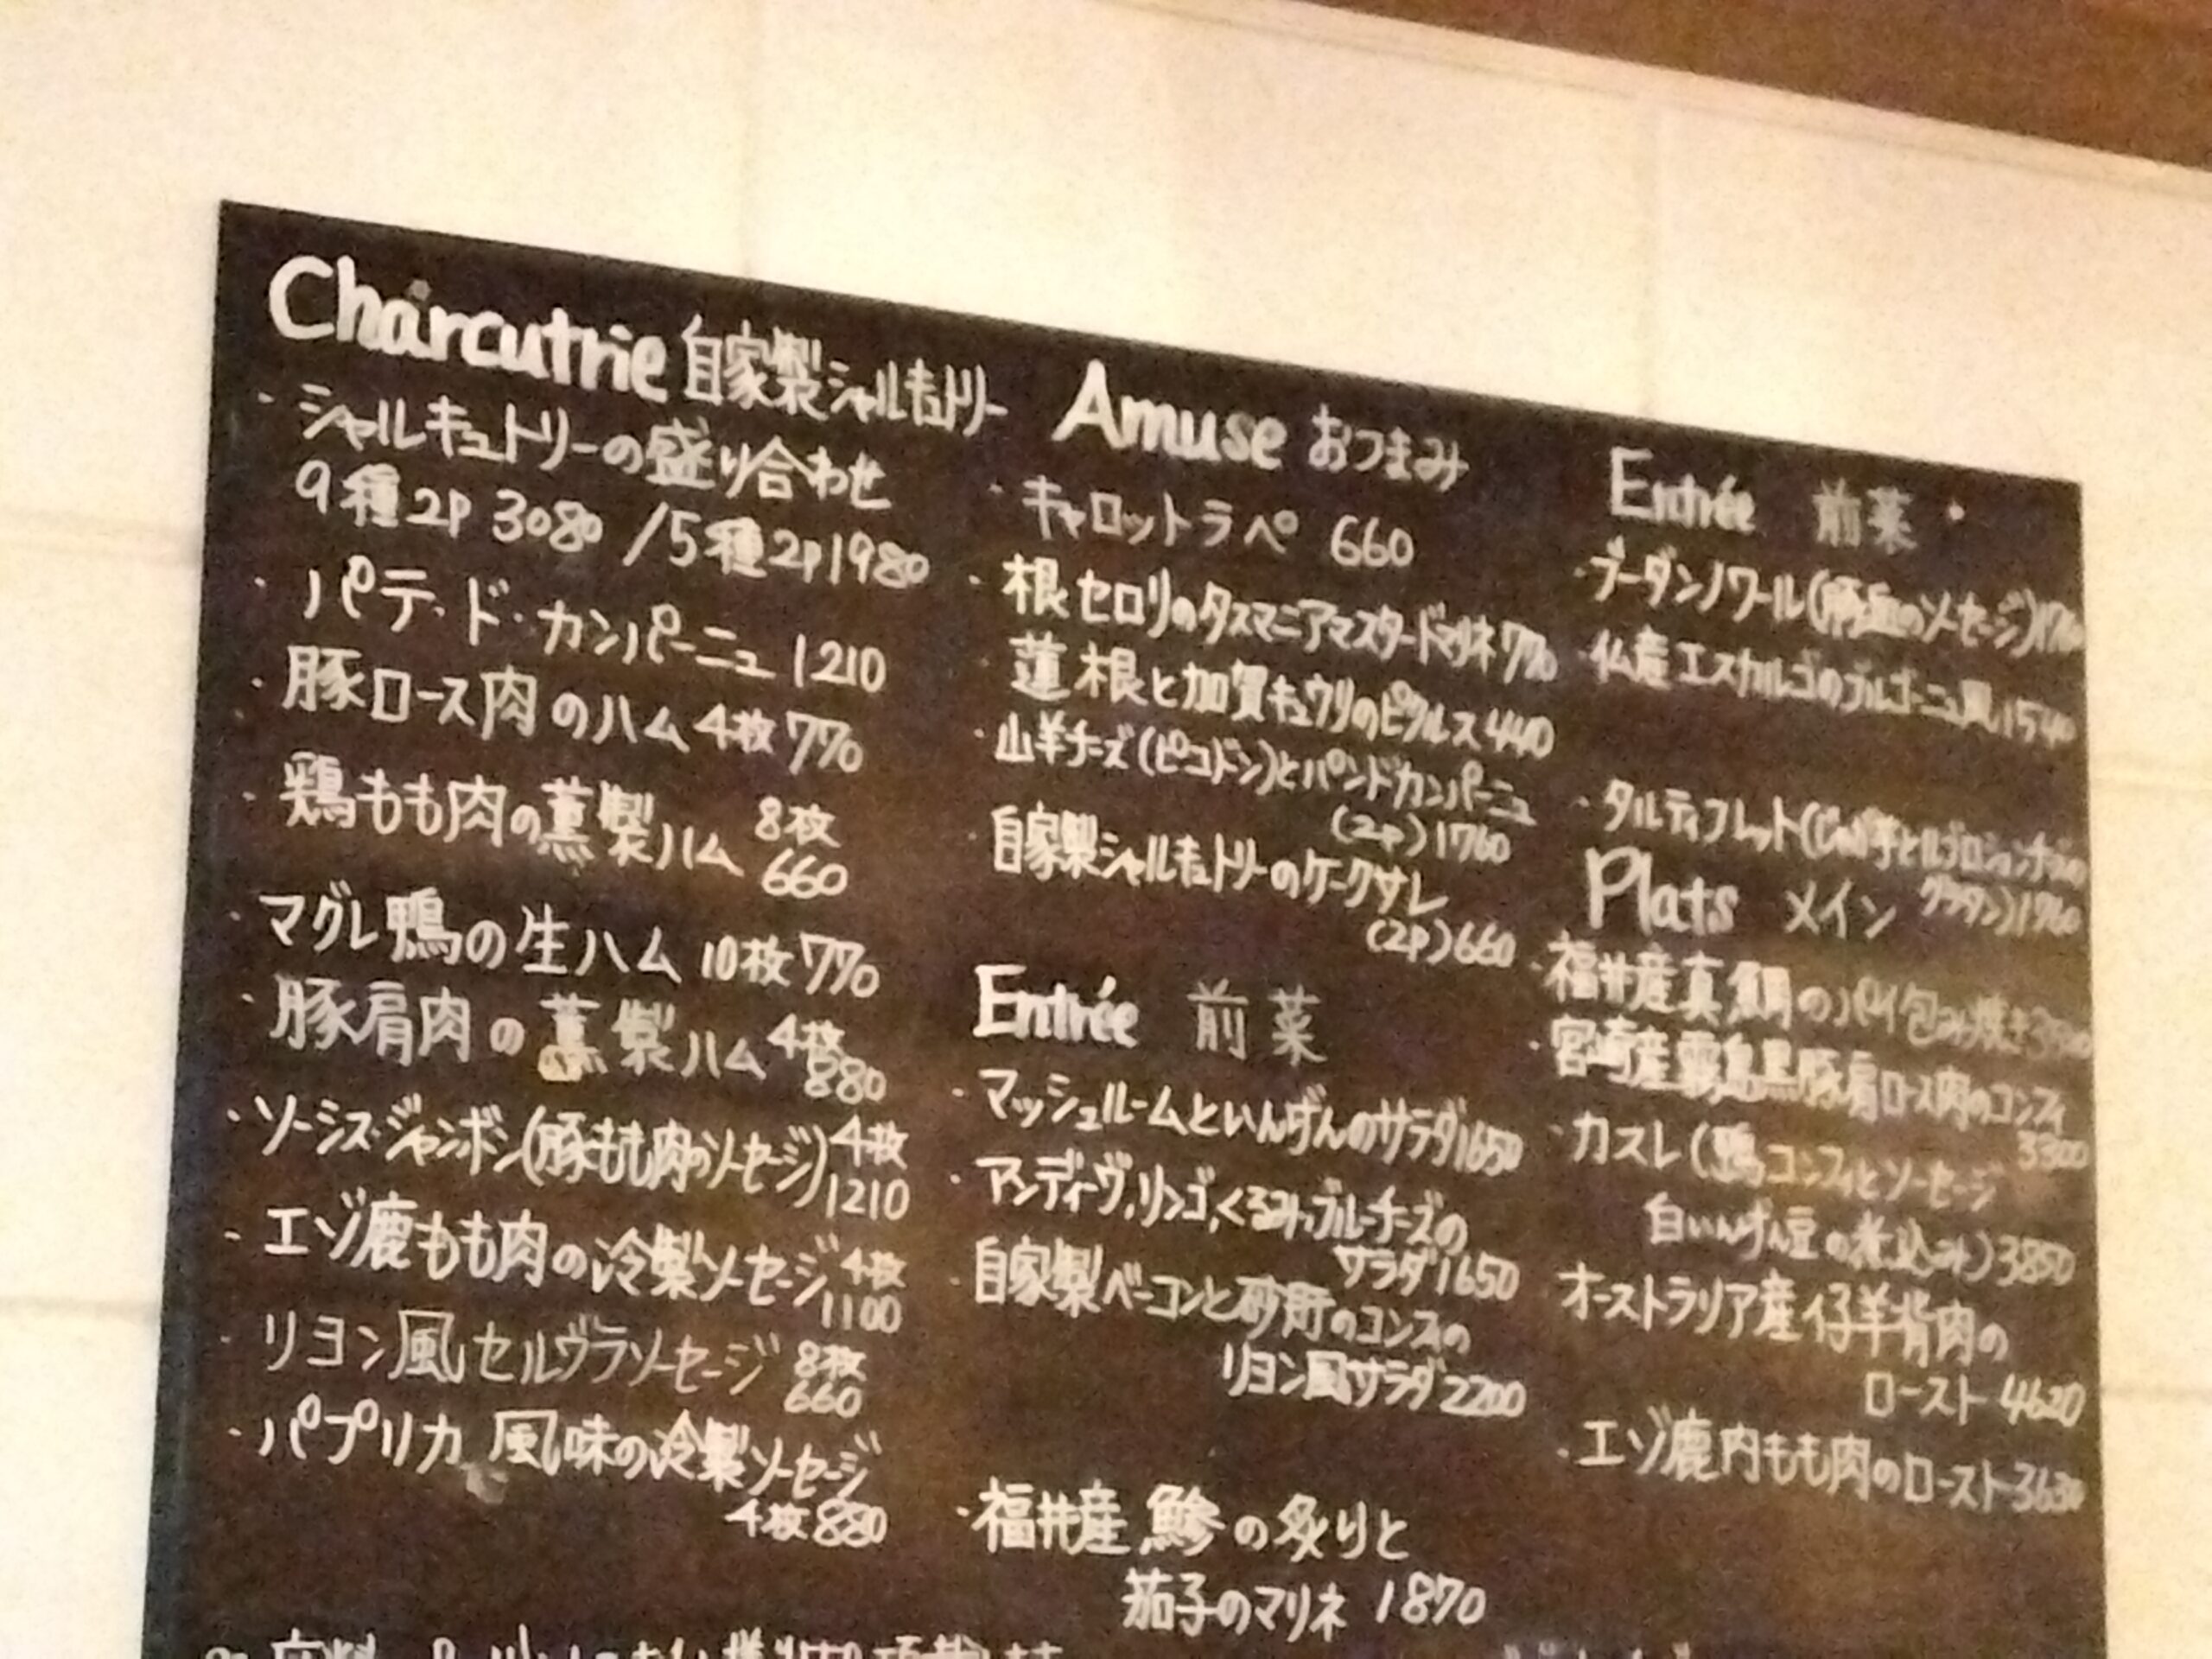 Charcutrie 自家製シャルキュトリー
・シャルキュトリーの盛り合わせ
9種2p 3080 /5種2p1980
・パテ・ド・カンパーニュ 1210
・豚ロース肉のハム 4枚770
・鶏もも肉の薫製ハム 8枚
660
・マグレ鴨の生ハム 10枚770
・豚肩肉の薫製ハム 4枚
880
・ソーシス・ジャンボン(豚もも肉のソーセージ)4枚
1210
・エゾ鹿もも肉の冷製ソーセージ 4枚
1100
・リヨン風セルヴラソーセージ 8枚
660
・パプリカ風味の冷製ソーセージ
4枚880
Amuse おつまみ
・キャロットラペ 660
・根セロリのタスマニアマスタードマリネ770
・蓮根と加賀キュウリのピクルス440
・山羊チーズ(ピコドン)とパンドカンパーニュ
(2p)1760
・自家製シャルキュトリーのケークサレ
(2p)660
Entrée 前菜
・マッシュルームといんげんのサラダ1650
・アンディーヴ,リンゴ,くるみ,ブルーチーズの
サラダ1650
・自家製ベーコンと砂肝のコンフィの
リヨン風サラダ2200
・福井産鯵の炙りと
茄子のマリネ 1870
Entrée 前菜
・ブーダンノワール(豚血のソーセージ)
・仏産エスカルゴのブルゴーニュ風1540
・タルティフレット(じゃが芋とルブロションチーズの
グラタン)1760
Plats メイン
・福井産真鯛のパイ包み焼き
・宮崎産霧島黒豚肩ロース肉のコンフィ
3300
・カスレ(鴨コンフィとソーセージ
白いんげん豆の煮込み)3850
オーストラリア産仔羊背肉の
ロースト 4620
・エゾ鹿内もも肉のロースト3630